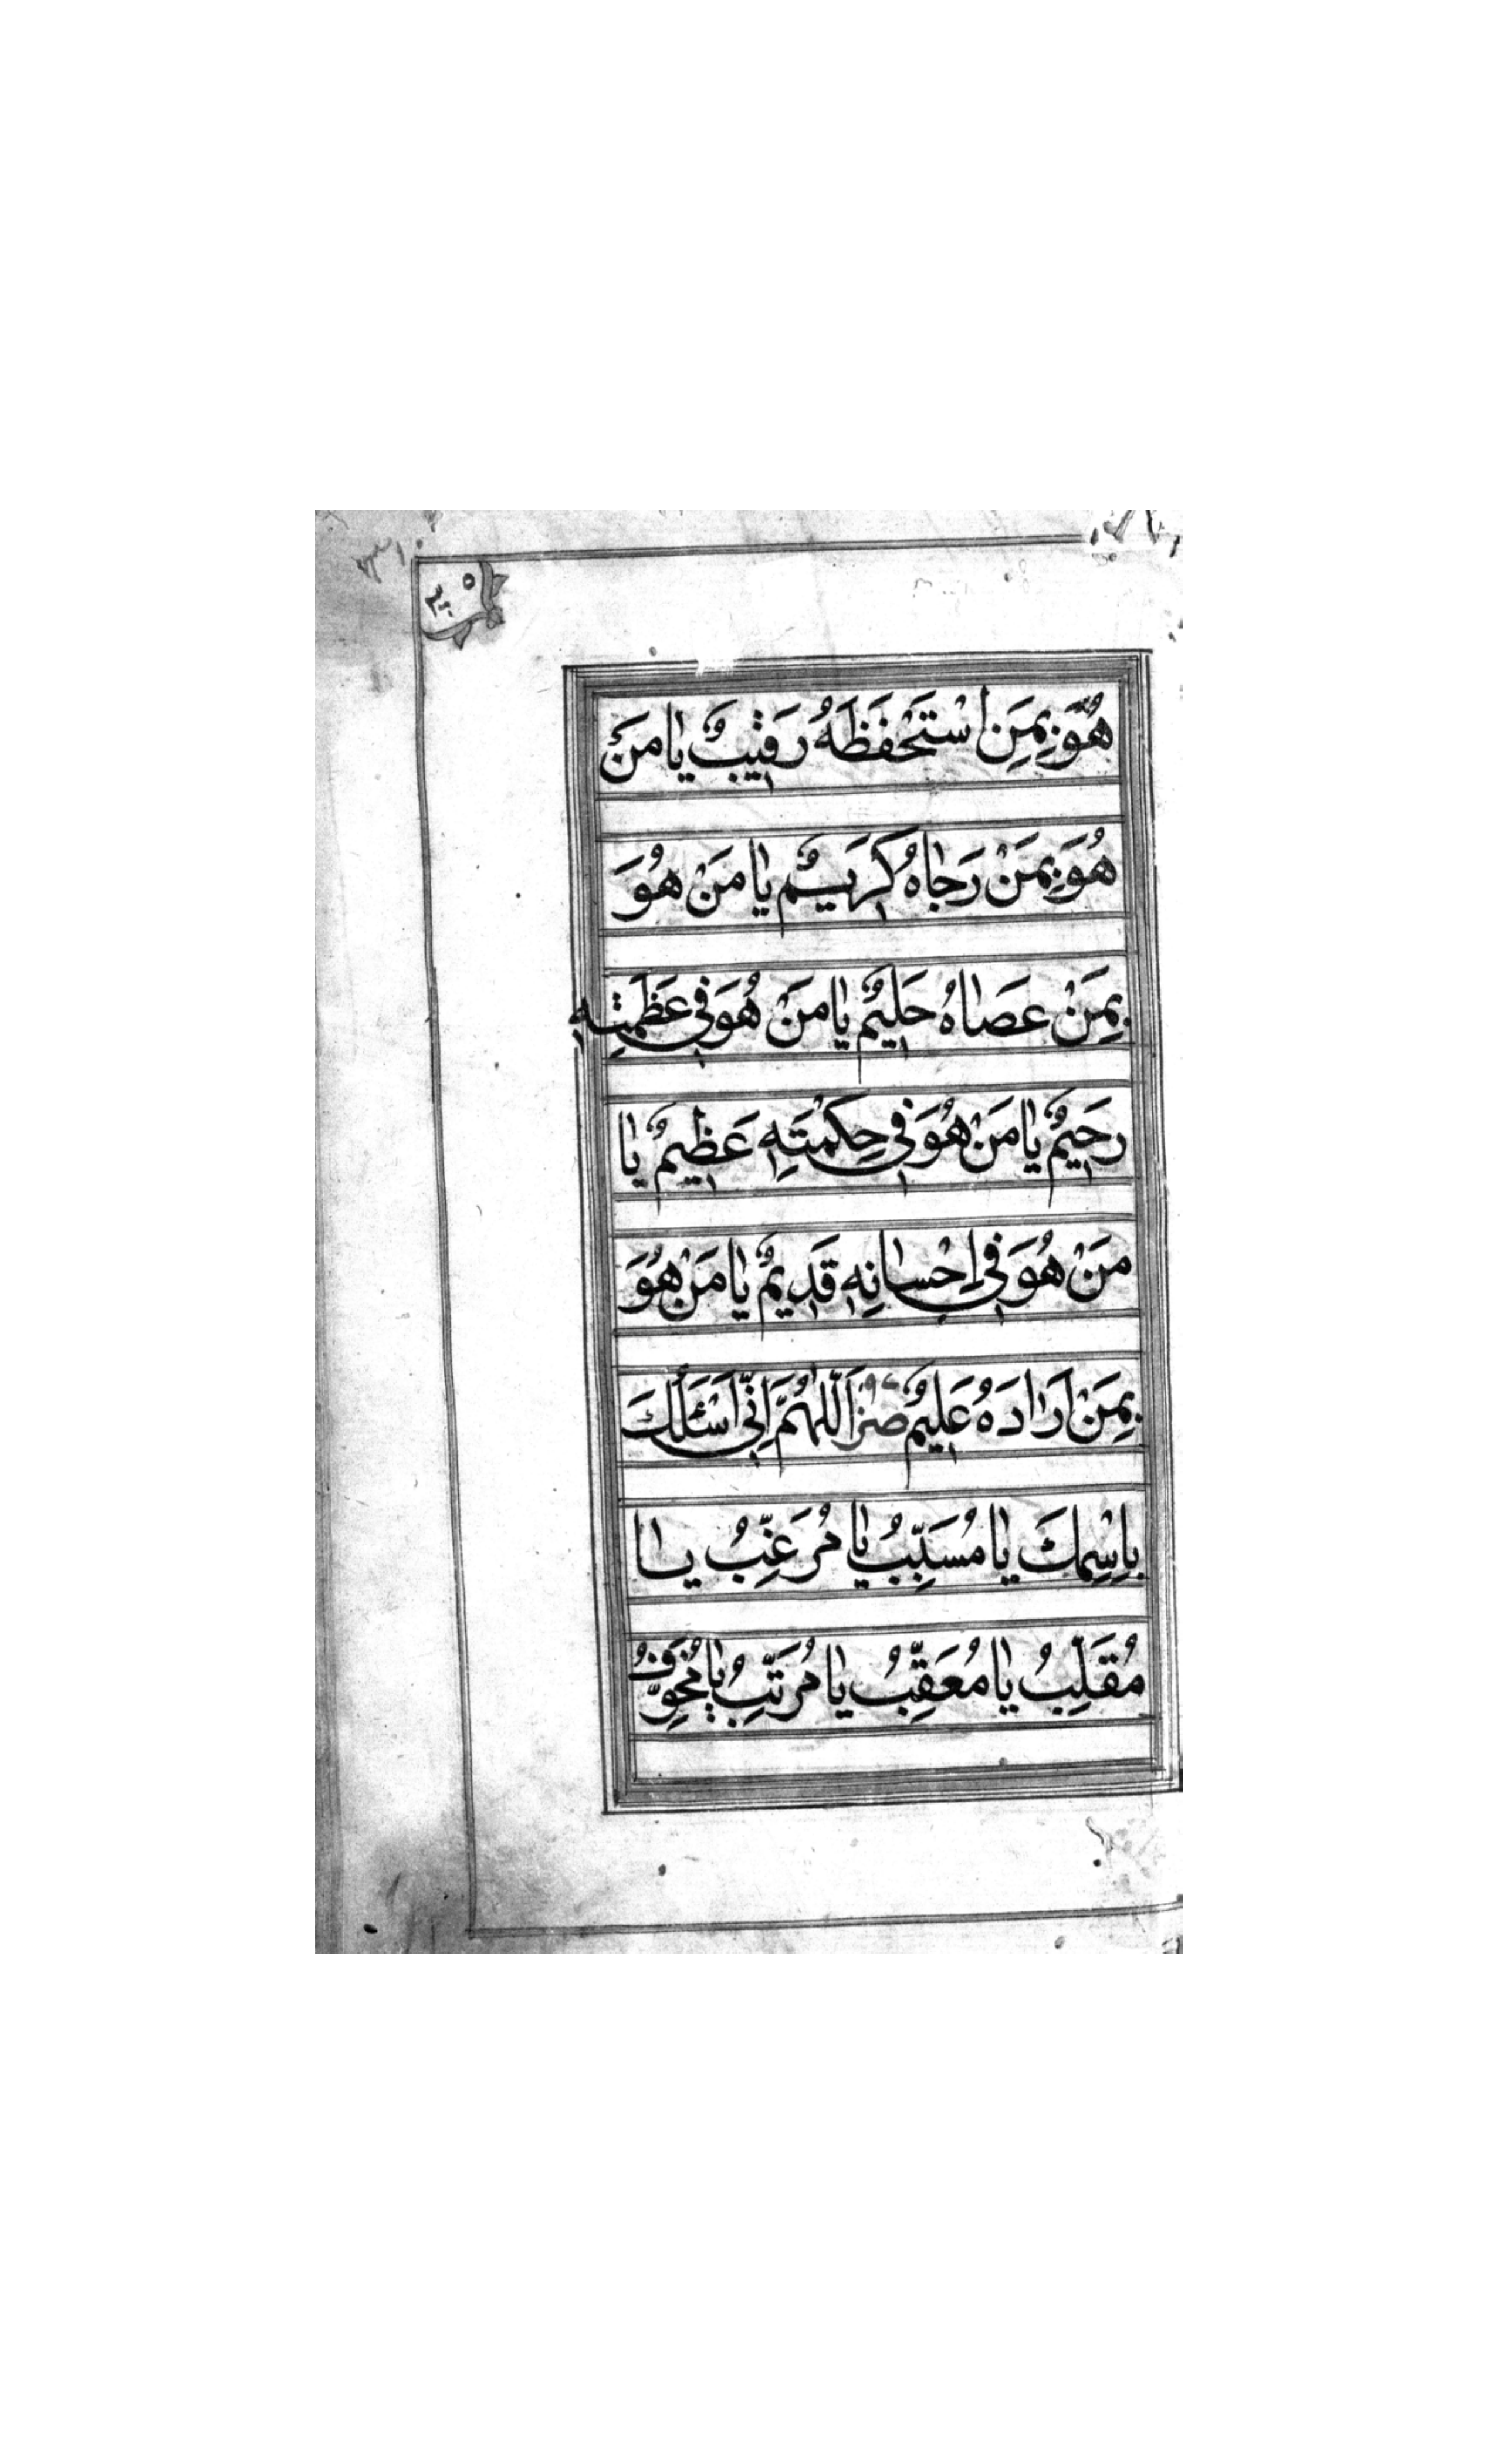 هُوَ بِمَنِ اسْتَحْفَظَهُ رَقِيبٌ يَا مَنْ
هُوَ بِمَنْ رَجَاهُ كَرِيمٌ يَا مَنْ هُوَ
بِمَنْ عَصَاهُ حَلِيمٌ يَا مَنْ هُوَ فِي عَظَمَتِهِ
رَحِيمٌ يَا مَنْ هُوَ فِي حِكْمَتِهِ عَظِيمٌ يَا
مَنْ هُوَ فِي اِحْسَانِهِ قَدِيمٌ يَا مَنْ هُوَ
بِمَنْ اَرَادَهُ عَلِيمٌ اَللّٰهُمَّ اِنِّي اَسْئَلُكَ
بِاسْمِكَ يَا مُسَبِّبُ يَا مُرَغِّبُ يَا
مُقَلِّبُ يَا مُعَقِّبُ يَا مُرَتِّبُ يَا مُخَوِّفُ